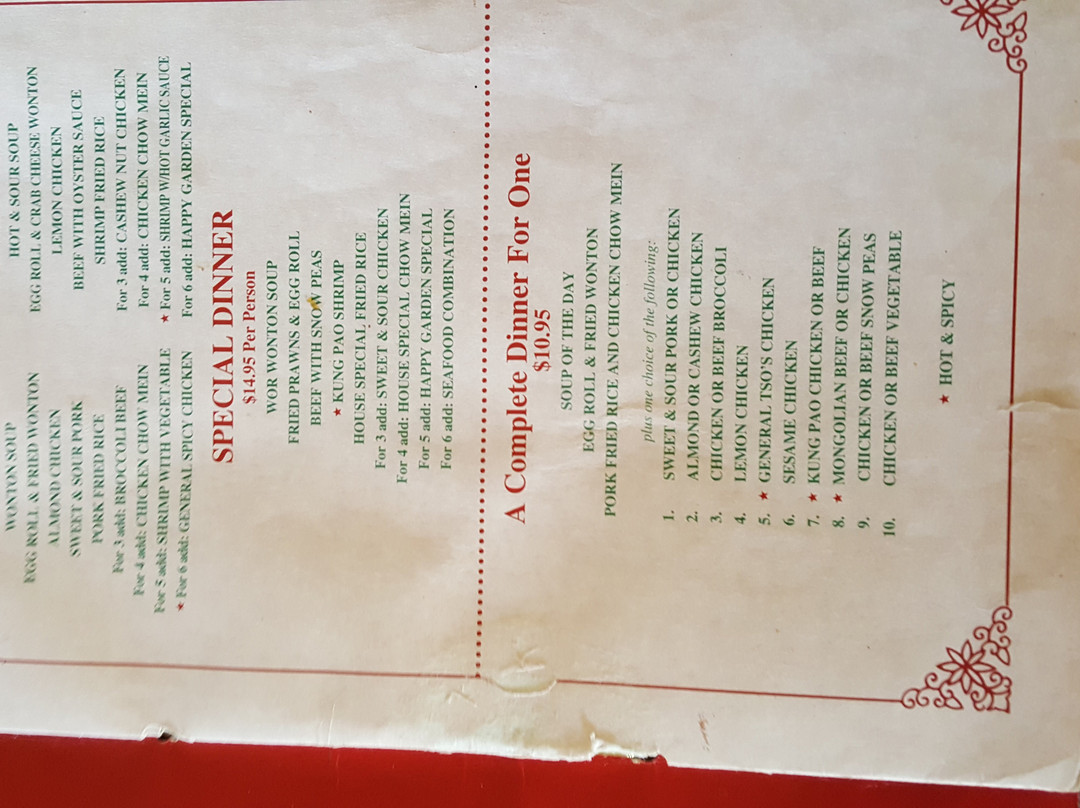 WONTON SOUP
EGG ROLL & FRIED WONTON
ALMOND CHICKEN
SWEET & SOUR PORK
PORK FRIED RICE
For 3 add: BROCCOLI BEEF
For 4 add: CHICKEN CHOW MEIN
For 5 add: SHRIMP WITH VEGETABLE
★ For 6 add: GENERAL SPICY CHICKEN
HOT & SOUR SOUP
EGG ROLL & CRAB CHEESE WONTON
LEMON CHICKEN
BEEF WITH OYSTER SAUCE
SHRIMP FRIED RICE
For 3 add: CASHEW NUT CHICKEN
For 4 add: CHICKEN CHOW MEIN
★ For 5 add: SHRIMP W/HOT GARLIC SAUCE
For 6 add: HAPPY GARDEN SPECIAL
SPECIAL DINNER
$14.95 Per Person
WOR WONTON SOUP
FRIED PRAWNS & EGG ROLL
BEEF WITH SNOW PEAS
★ KUNG PAO SHRIMP
HOUSE SPECIAL FRIED RICE
For 3 add: SWEET & SOUR CHICKEN
For 4 add: HOUSE SPECIAL CHOW MEIN
For 5 add: HAPPY GARDEN SPECIAL
For 6 add: SEAFOOD COMBINATION
A Complete Dinner For One
$10.95
SOUP OF THE DAY
EGG ROLL & FRIED WONTON
PORK FRIED RICE AND CHICKEN CHOW MEIN
plus one choice of the following:
1. SWEET & SOUR PORK OR CHICKEN
2. ALMOND OR CASHEW CHICKEN
3. CHICKEN OR BEEF BROCCOLI
4. LEMON CHICKEN
5. ★ GENERAL TSO'S CHICKEN
6. SESAME CHICKEN
7. ★ KUNG PAO CHICKEN OR BEEF
8. ★ MONGOLIAN BEEF OR CHICKEN
9. CHICKEN OR BEEF SNOW PEAS
10. CHICKEN OR BEEF VEGETABLE
★ HOT & SPICY